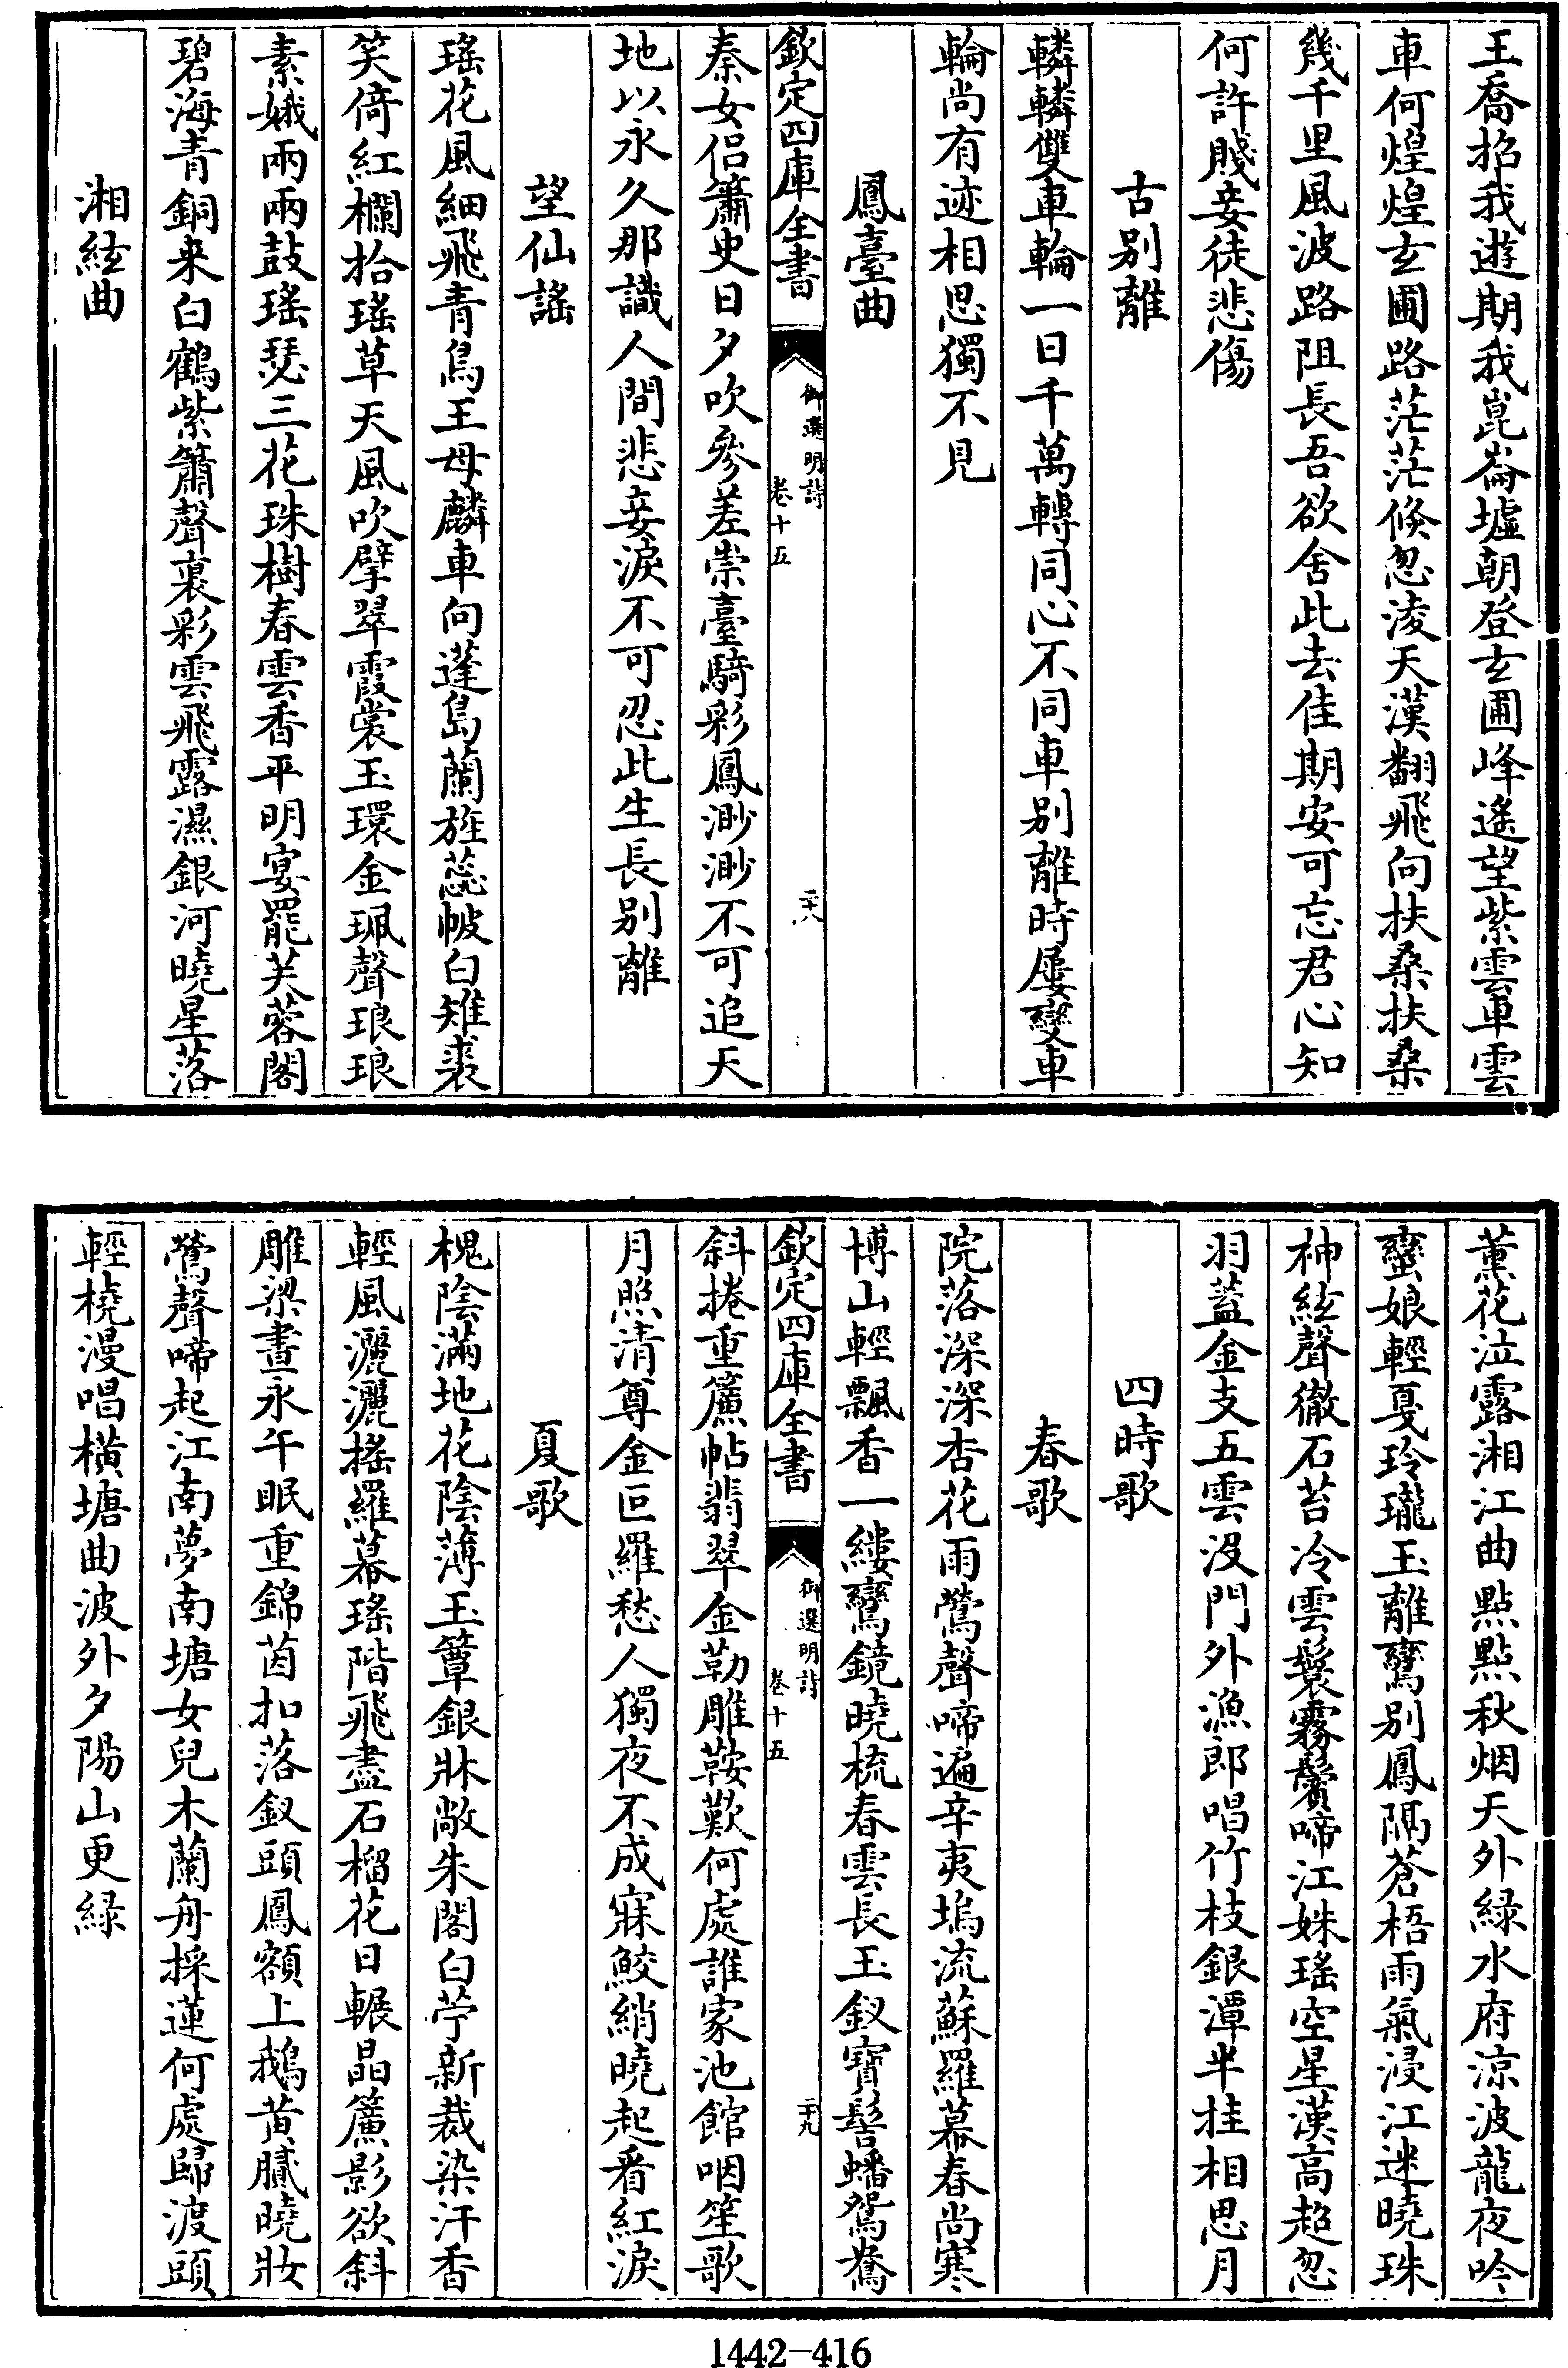 王喬招我遊期我崑崙墟朝登玄圃峰遙望紫雲車雲
車何煌煌玄圃路茫茫倏忽淩天漢翻飛向扶桑扶桑
幾千里風波路阻長吾欲舍此去佳期安可忘君心知
何許賤妾徒悲傷
古别離
轔轔雙車輪一日千萬轉同心不同車别離時屢變車
輪尚有迹相思獨不見
鳳臺曲
欽定四庫全書
御選明詩
卷十五
二十八
秦女侣簫史日夕吹參差崇臺騎彩鳳渺渺不可追天
地以永久那識人間悲妾淚不可忍此生長别離
望仙謠
瑤花風細飛青鳥王母麟車向蓬島蘭旌蕊帔白雉裘
笑倚紅欄拾瑤草天風吹擘翠霞裳玉環金珮聲琅琅
素娥兩兩鼓瑤瑟三花珠樹春雲香平明宴罷芙蓉閣
碧海青銅来白鶴紫簫聲裏彩雲飛露濕銀河曉星落
湘絃曲
薫花泣露湘江曲點點秋烟天外緑水府凉波龍夜吟
蠻娘輕戛玲瓏玉離鸞别鳳隔蒼梧雨氣浸江迷曉珠
神絃聲徹石苔冷雲鬟霧鬢啼江姝瑤空星漢高超忽
羽蓋金支五雲沒門外漁郎唱竹枝銀潭半挂相思月
四時歌
春歌
院落深深杏花雨鶯聲啼遍辛夷塢流蘇羅幕春尚寒
博山輕飄香一縷鸞鏡曉梳春雲長玉釵寶髻蟠鴛鴦
欽定四庫全書
御選明詩
卷十五
二十九
斜捲重簾帖翡翠金勒雕鞍歎何處誰家池館咽笙歌
月照清尊金叵羅愁人獨夜不成寐鮫綃曉起看紅淚
夏歌
槐陰滿地花陰薄玉簟銀牀敞朱閣白苧新裁染汗香
輕風灑灑搖羅幕瑤階飛盡石榴花日輾晶簾影欲斜
雕梁晝永午眠重錦茵扣落釵頭鳳額上鵝黄膩曉妝
鶯聲啼起江南夢南塘女兒木蘭舟採蓮何處歸渡頭
輕橈漫唱横塘曲波外夕陽山更緑
1442-416